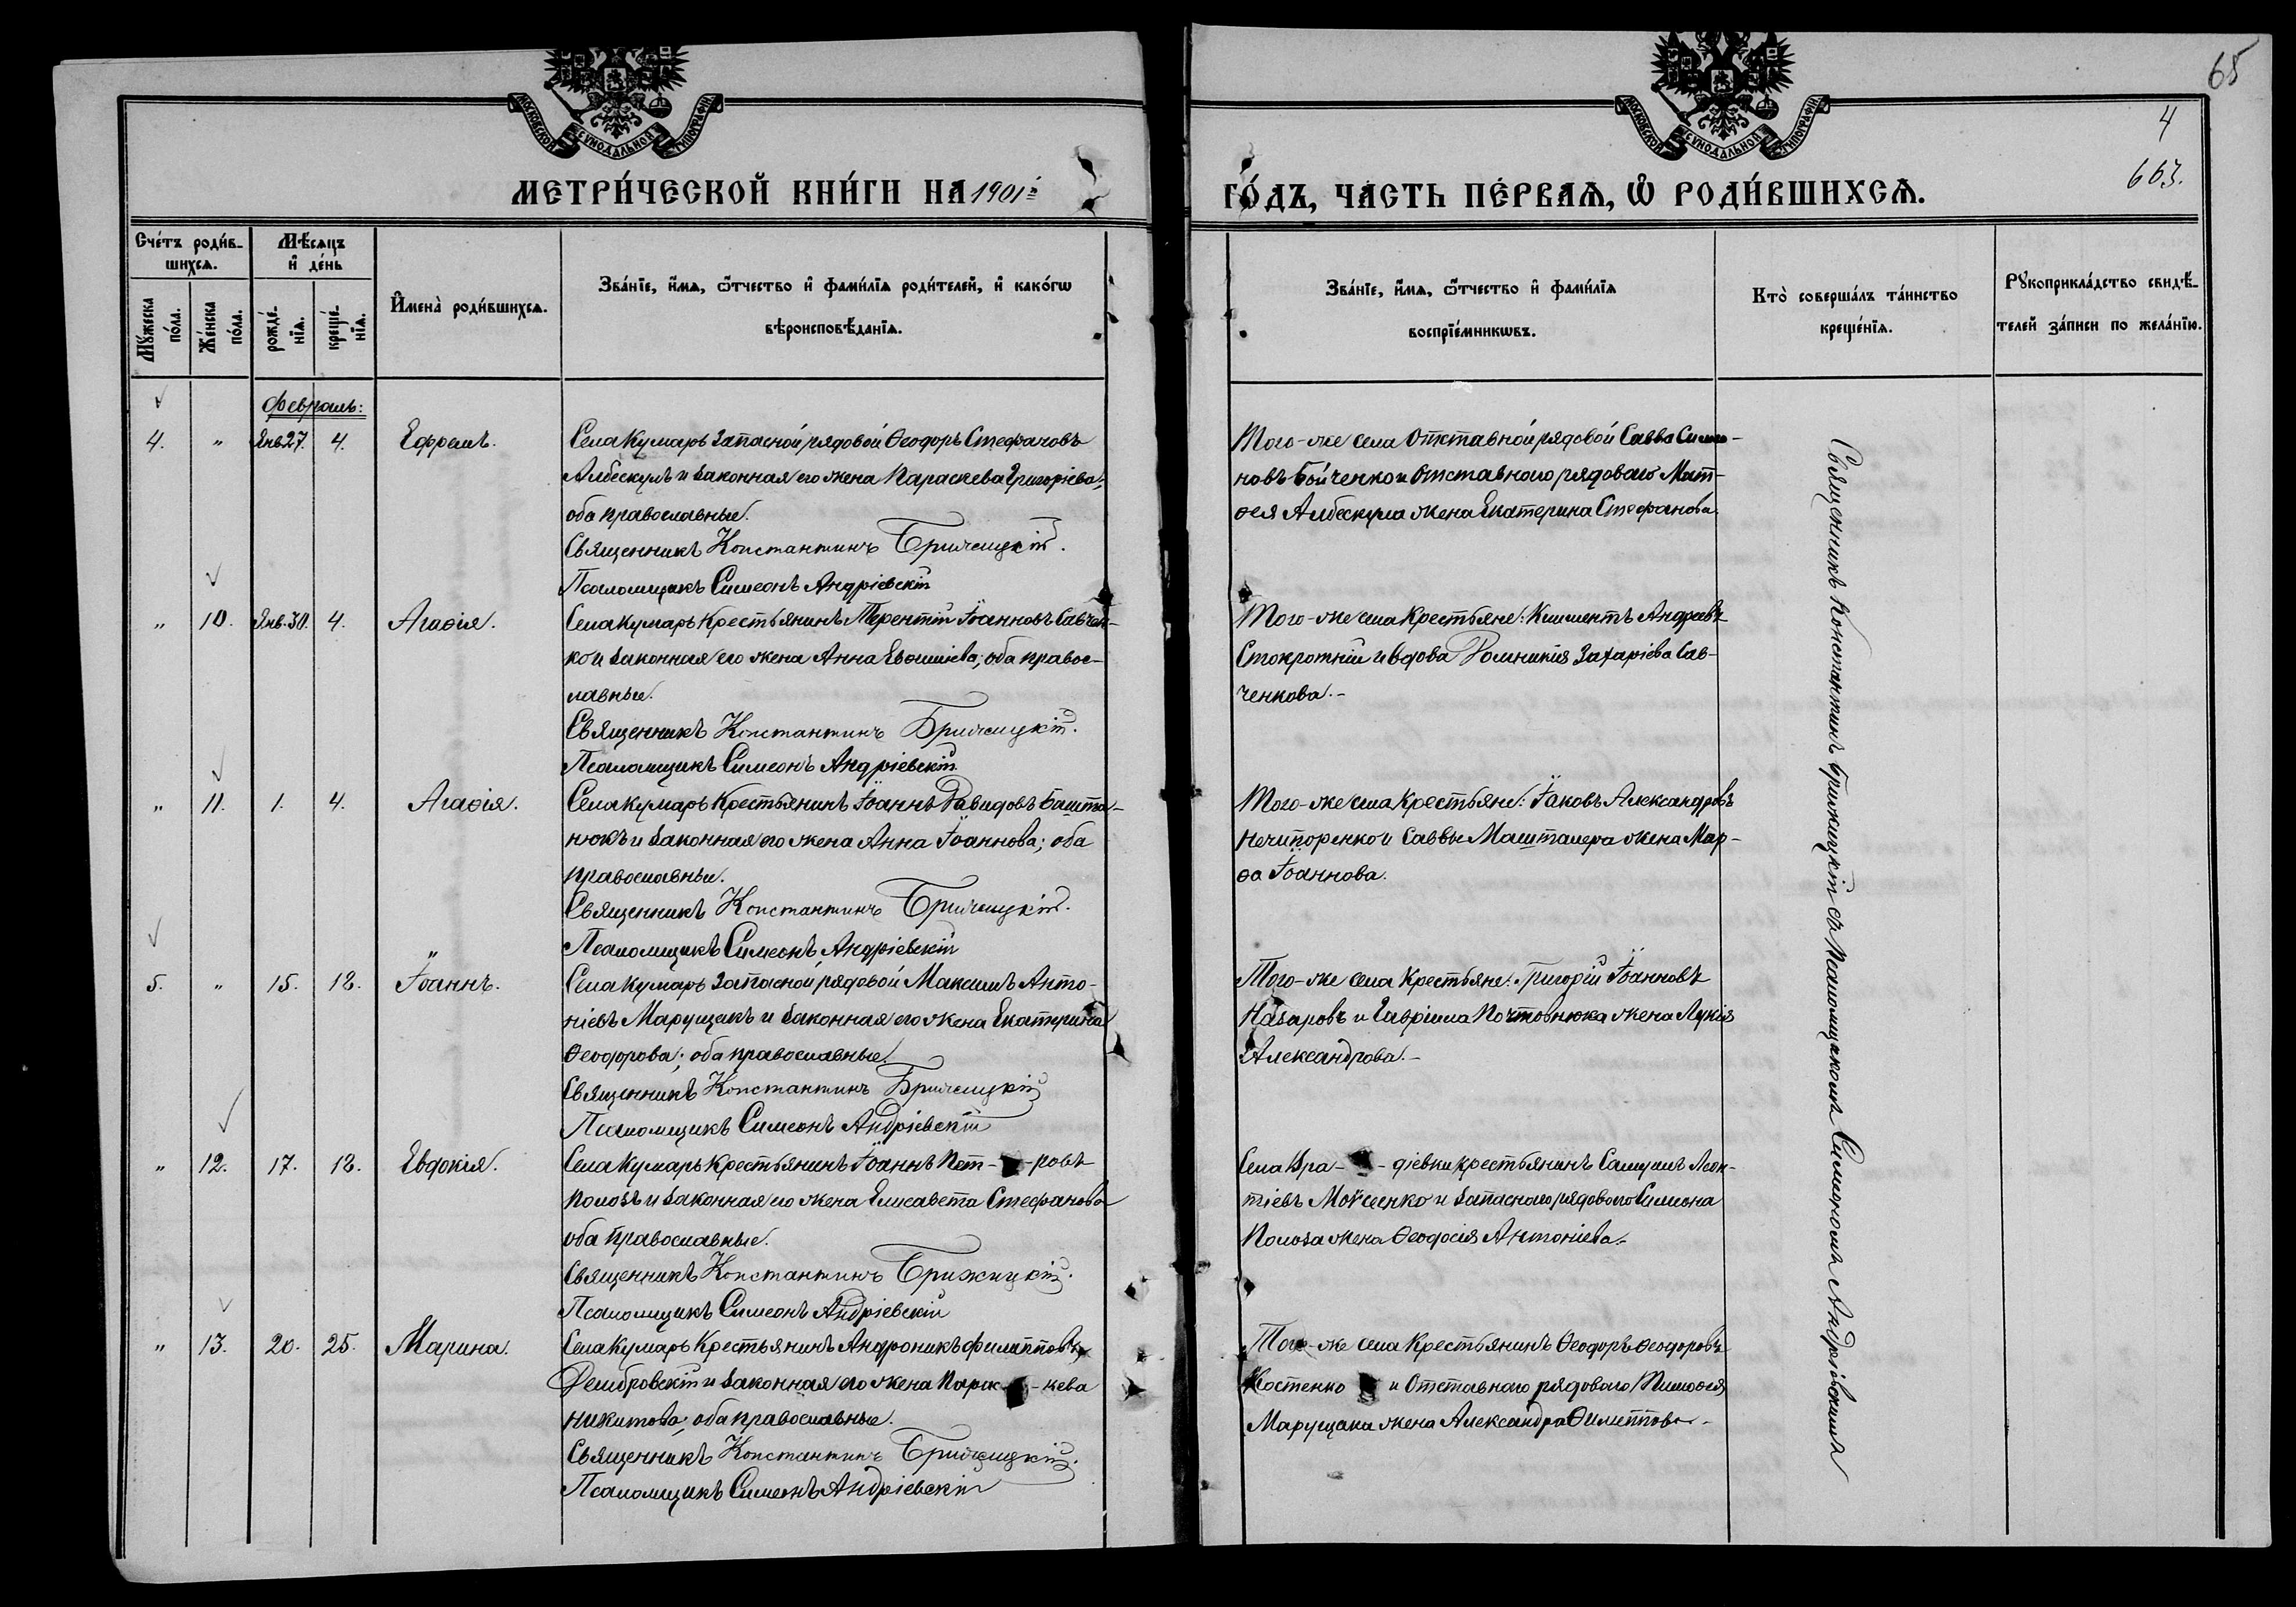 65
4
663.
МОСКОВСКОЙ СѴНОДАЛЬНОЙ ТИПОГРАФІИ
МОСКОВСКОЙ СѴНОДАЛЬНОЙ ТИПОГРАФІИ
МЕТРИ́ЧЕСКОЙ КНИ́ГИ НА 1901й
ГО́ДЪ, ЧА́СТЬ ПЕ́РВАѦ, Ѡ҆ РОДИ́ВШИХСѦ.
Сче́тъ роди́в-
шихсѧ.
Мꙋ́жеска по́ла.
Же́нска по́ла.
Мѣ́сѧцъ
и҆ де́нь
рожде́-
нїѧ.
креще́-
нїѧ.
И҆мена̀ роди́вшихсѧ.
Зва́нїе, и҆́мѧ, ѻ҆́тчество и҆ фами́лїѧ роди́телей, и҆ како́гѡ
вѣроисповѣ́данїѧ.
Зва́нїе, и҆́мѧ, ѻ҆́тчество и҆ фами́лїѧ
воспрїе́мникѡвъ.
Кто̀ соверша́лъ та́инство
креще́нїѧ.
Рꙋкоприкла́дство свидѣ́-
телей за́писи по жела́нїю.
Февраль:
4. " Янв 27. 4. Ефремъ.
Села Кумаръ Запасной рядовой Ѳеодоръ Стефановъ
Албескулъ и законная его жена Параскева Григоріева;
оба православные.
Священникъ Константинъ Брижицкій.
Псаломщикъ Симеонъ Андріевскій
Того-же села Отставной рядовой Савва Симо-
новъ Бойченко и отставного рядового Мат-
ѳея Албескула жена Екатерина Стефанова.
" 10. Янв. 30. 4. Агаѳія.
Села Кумаръ Крестьянинъ Терентій Іоанновъ Савчен-
ко и законная его жена Анна Евѳиміева; оба правос-
лавные.
Священникъ Константинъ Брижицкій.
Псаломщикъ Симеонъ Андріевскій
Того-же села Крестьяне: Климентъ Андреевъ
Стокротній и вдова Домникія Захаріева Сав-
ченкова.-
" 11. 1. 4. Агаѳія.
Села Кумаръ Крестьянинъ Іоаннъ Давидовъ Башта-
нюкъ и законная его жена Анна Іоаннова; оба
православные.
Священникъ Константинъ Брижицкій.
Псаломщикъ Симеонъ Андріевскій
Того-же села Крестьяне: Іаковъ Александровъ
Нечипоренко и Саввы Машталера жена Мар-
ѳа Іоаннова.
5. " 15. 18. Іоаннъ.
Села Кумаръ Запасной рядовой Максимъ Анто-
ніевъ Марущакъ и законная его жена Екатерина
Ѳеодорова; оба православные.
Священникъ Константинъ Брижицкій
Псаломщикъ Симеонъ Андріевскій
Того-же села Крестьяне: Григорій Іоанновъ
Назаровъ и Гавріила Почтовнюка жена Лукія
Александрова.-
" 12. 17. 18. Евдокія.
Села Кумаръ Крестьянинъ Іоаннъ Пет- -ровъ
Полозъ и законная его жена Елисавета Стефанова
оба православные.
Священникъ Константинъ Брижицкій.
Псаломщикъ Симеонъ Андріевскій
Села Ара- -діевки крестьянинъ Самуилъ Леон-
тіевъ Мойсенко и запасного рядового Симеона
Полоза жена Ѳеодосія Антоніева.-
" 13. 20. 25. Марина.
Села Кумаръ Крестьянинъ Андроникъ Филипповъ
Дембровскій и законная его жена Парас- -кева
Никитова; оба православные.
Священникъ Константинъ Брижицкій.
Псаломщикъ Симеонъ Андріевскій
Того-же села Крестьянинъ Ѳеодоръ Ѳеодоровъ
Костенко и Отставного рядового Тимоѳея
Марущака жена Александра Филиппова-
Священникъ Константинъ Брижицкій съ Псаломщикомъ Симеономъ Андріевскимъ